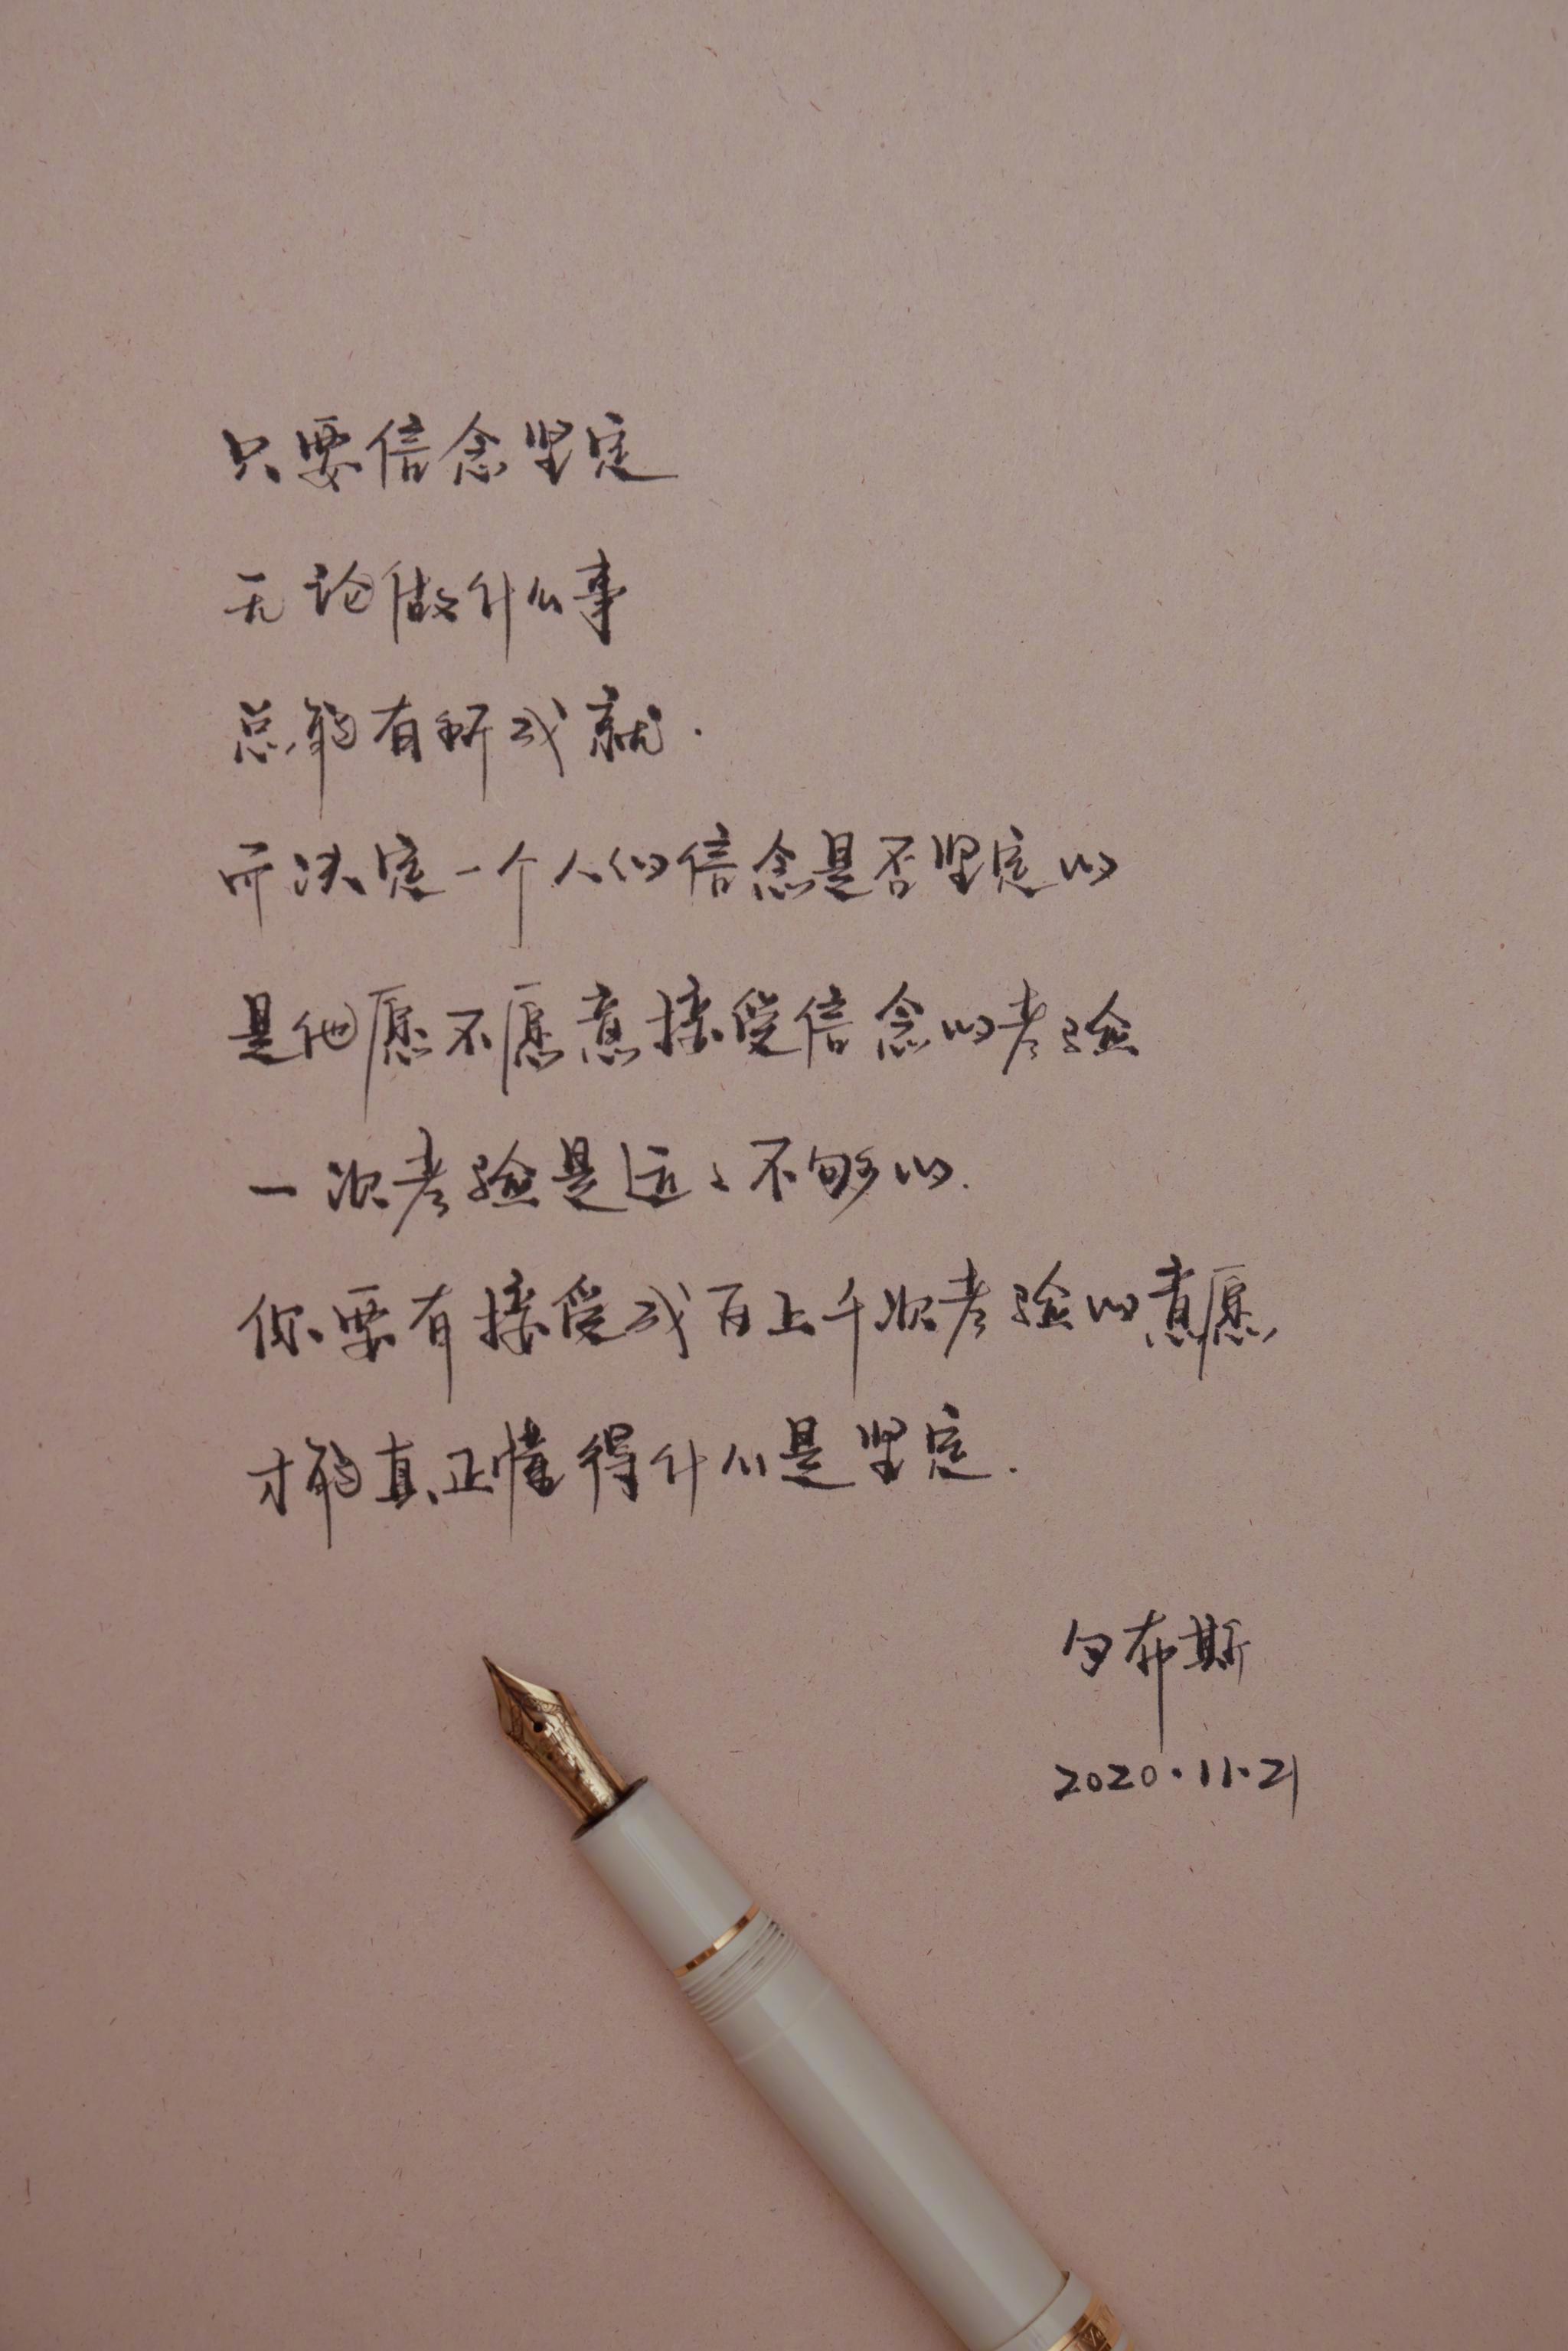 只要信念坚定
无论做什么事
总能有所成就.
而决定一个人的信念是否坚定的
是他愿不愿意接受信念的考验
一次考验是远々不够的.
你要有接受成百上千次考验的意愿
才能真正懂得什么是坚定.
布斯
2020·11·21